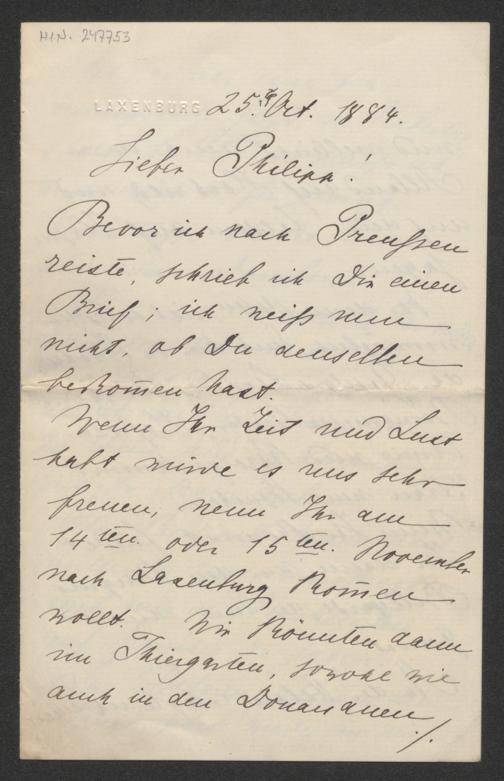 HIN. 247753
LAXENBURG 25.t Oct. 1884.
Lieber Philipp!
Bevor ich nach Preußen
reiste, schrieb ich Dir einen
Brief; ich weiß nun
nicht, ob Du denselben
bekom̄en hast.
Wenn Ihr Zeit und Lust
habt würde es uns sehr
freuen, wenn Ihr am
14ten. oder 15ten. November
nach Laxenburg kom̄en
wollt. Wir könnten dann
im Thiergarten, sowohl wie
auch in den Donauauen
./.